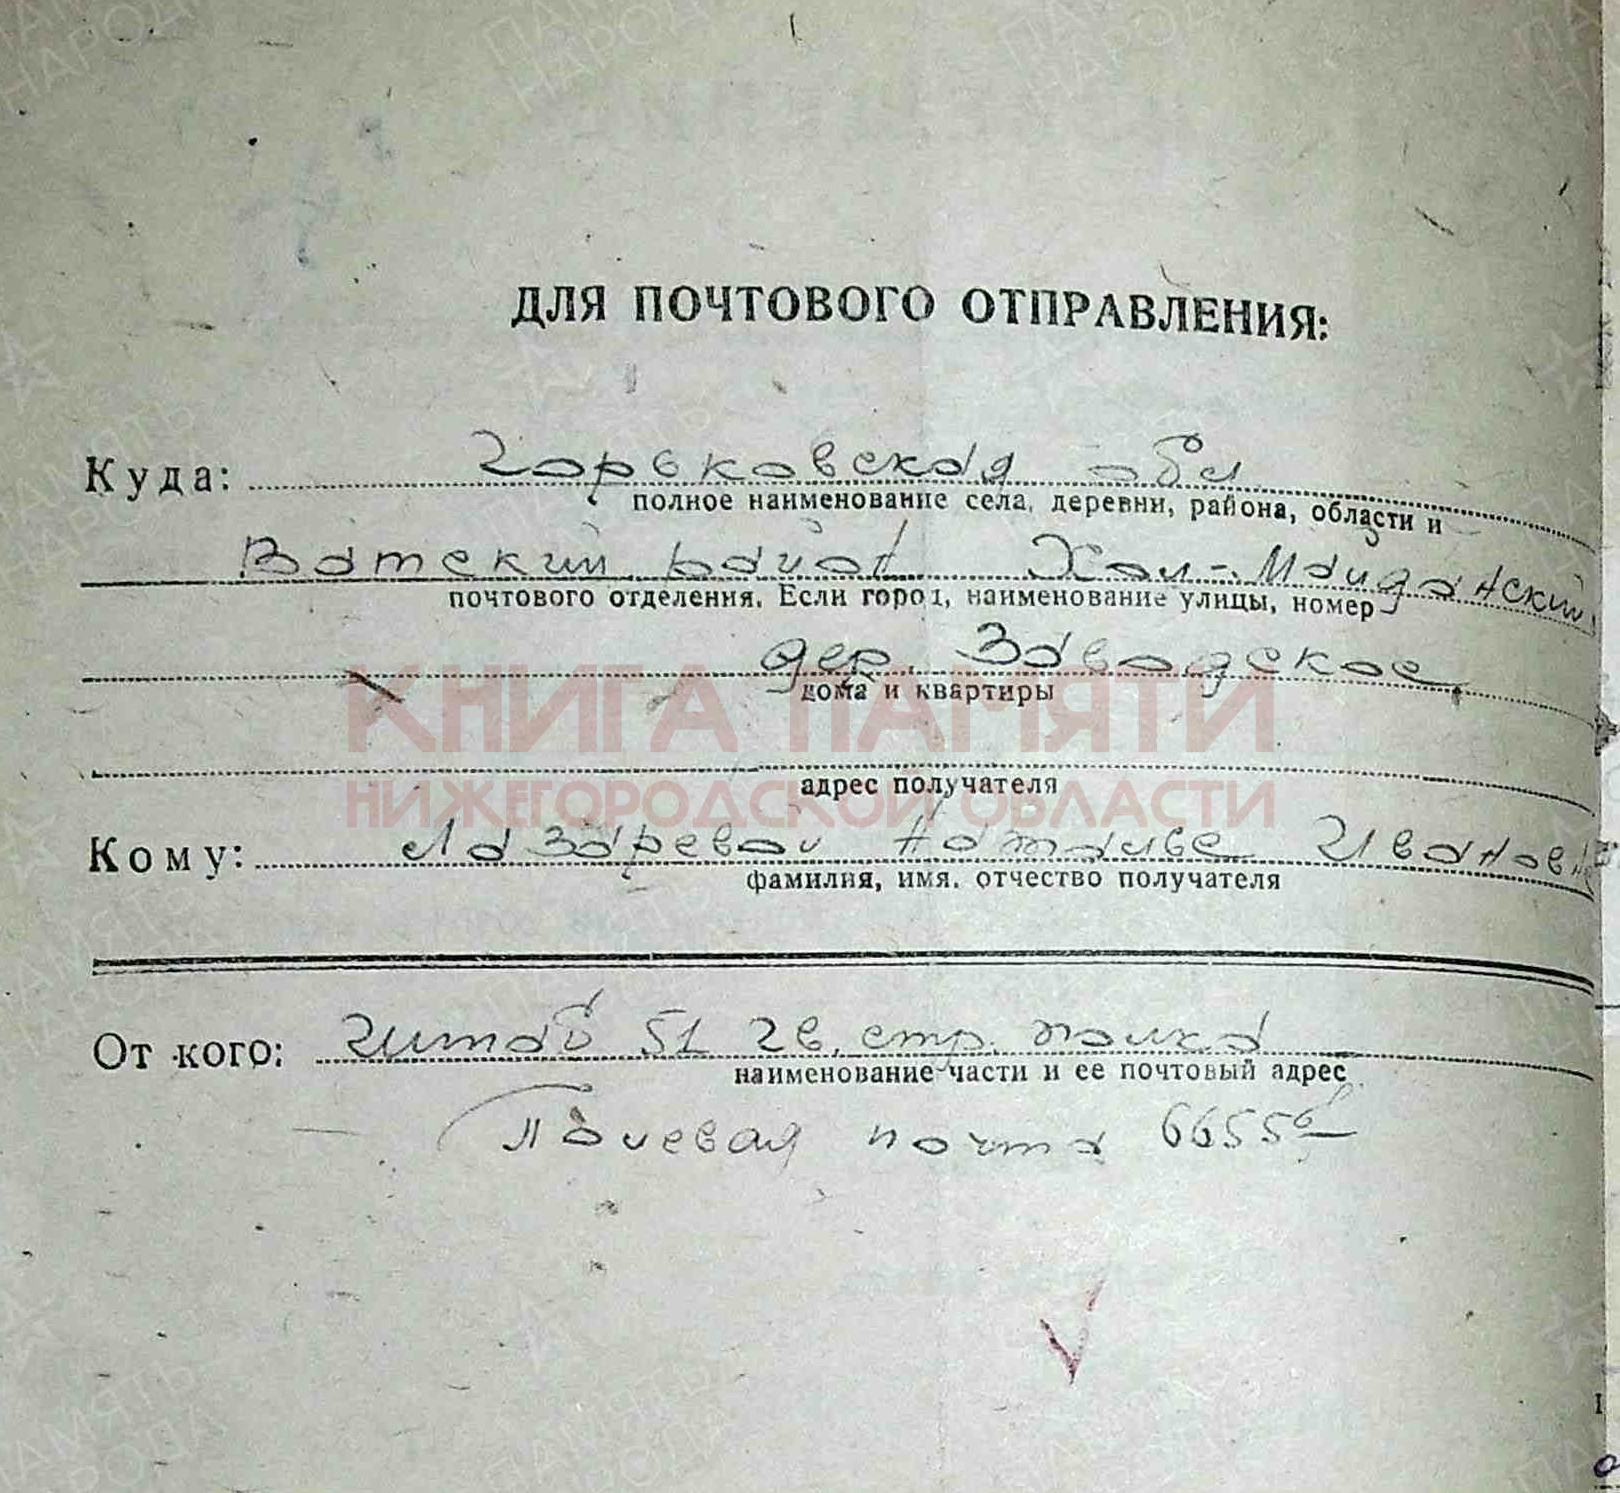 ДЛЯ ПОЧТОВОГО ОТПРАВЛЕНИЯ:
Куда: Горьковская обл
полное наименование села, деревни, района, области и
Ватский район Хол-Майданский
почтового отделения. Если город, наименование улицы, номер
дер. Заводское
дома и квартиры
КНИГА ПАМЯТИ
адрес получателя
НИЖЕГОРОДСКОЙ ОБЛАСТИ
Кому: Лазаревой Наталье Ивановне
фамилия, имя, отчество получателя
От кого: Штаб 51 гв. стр. полка
наименование части и ее почтовый адрес
Полевая почта